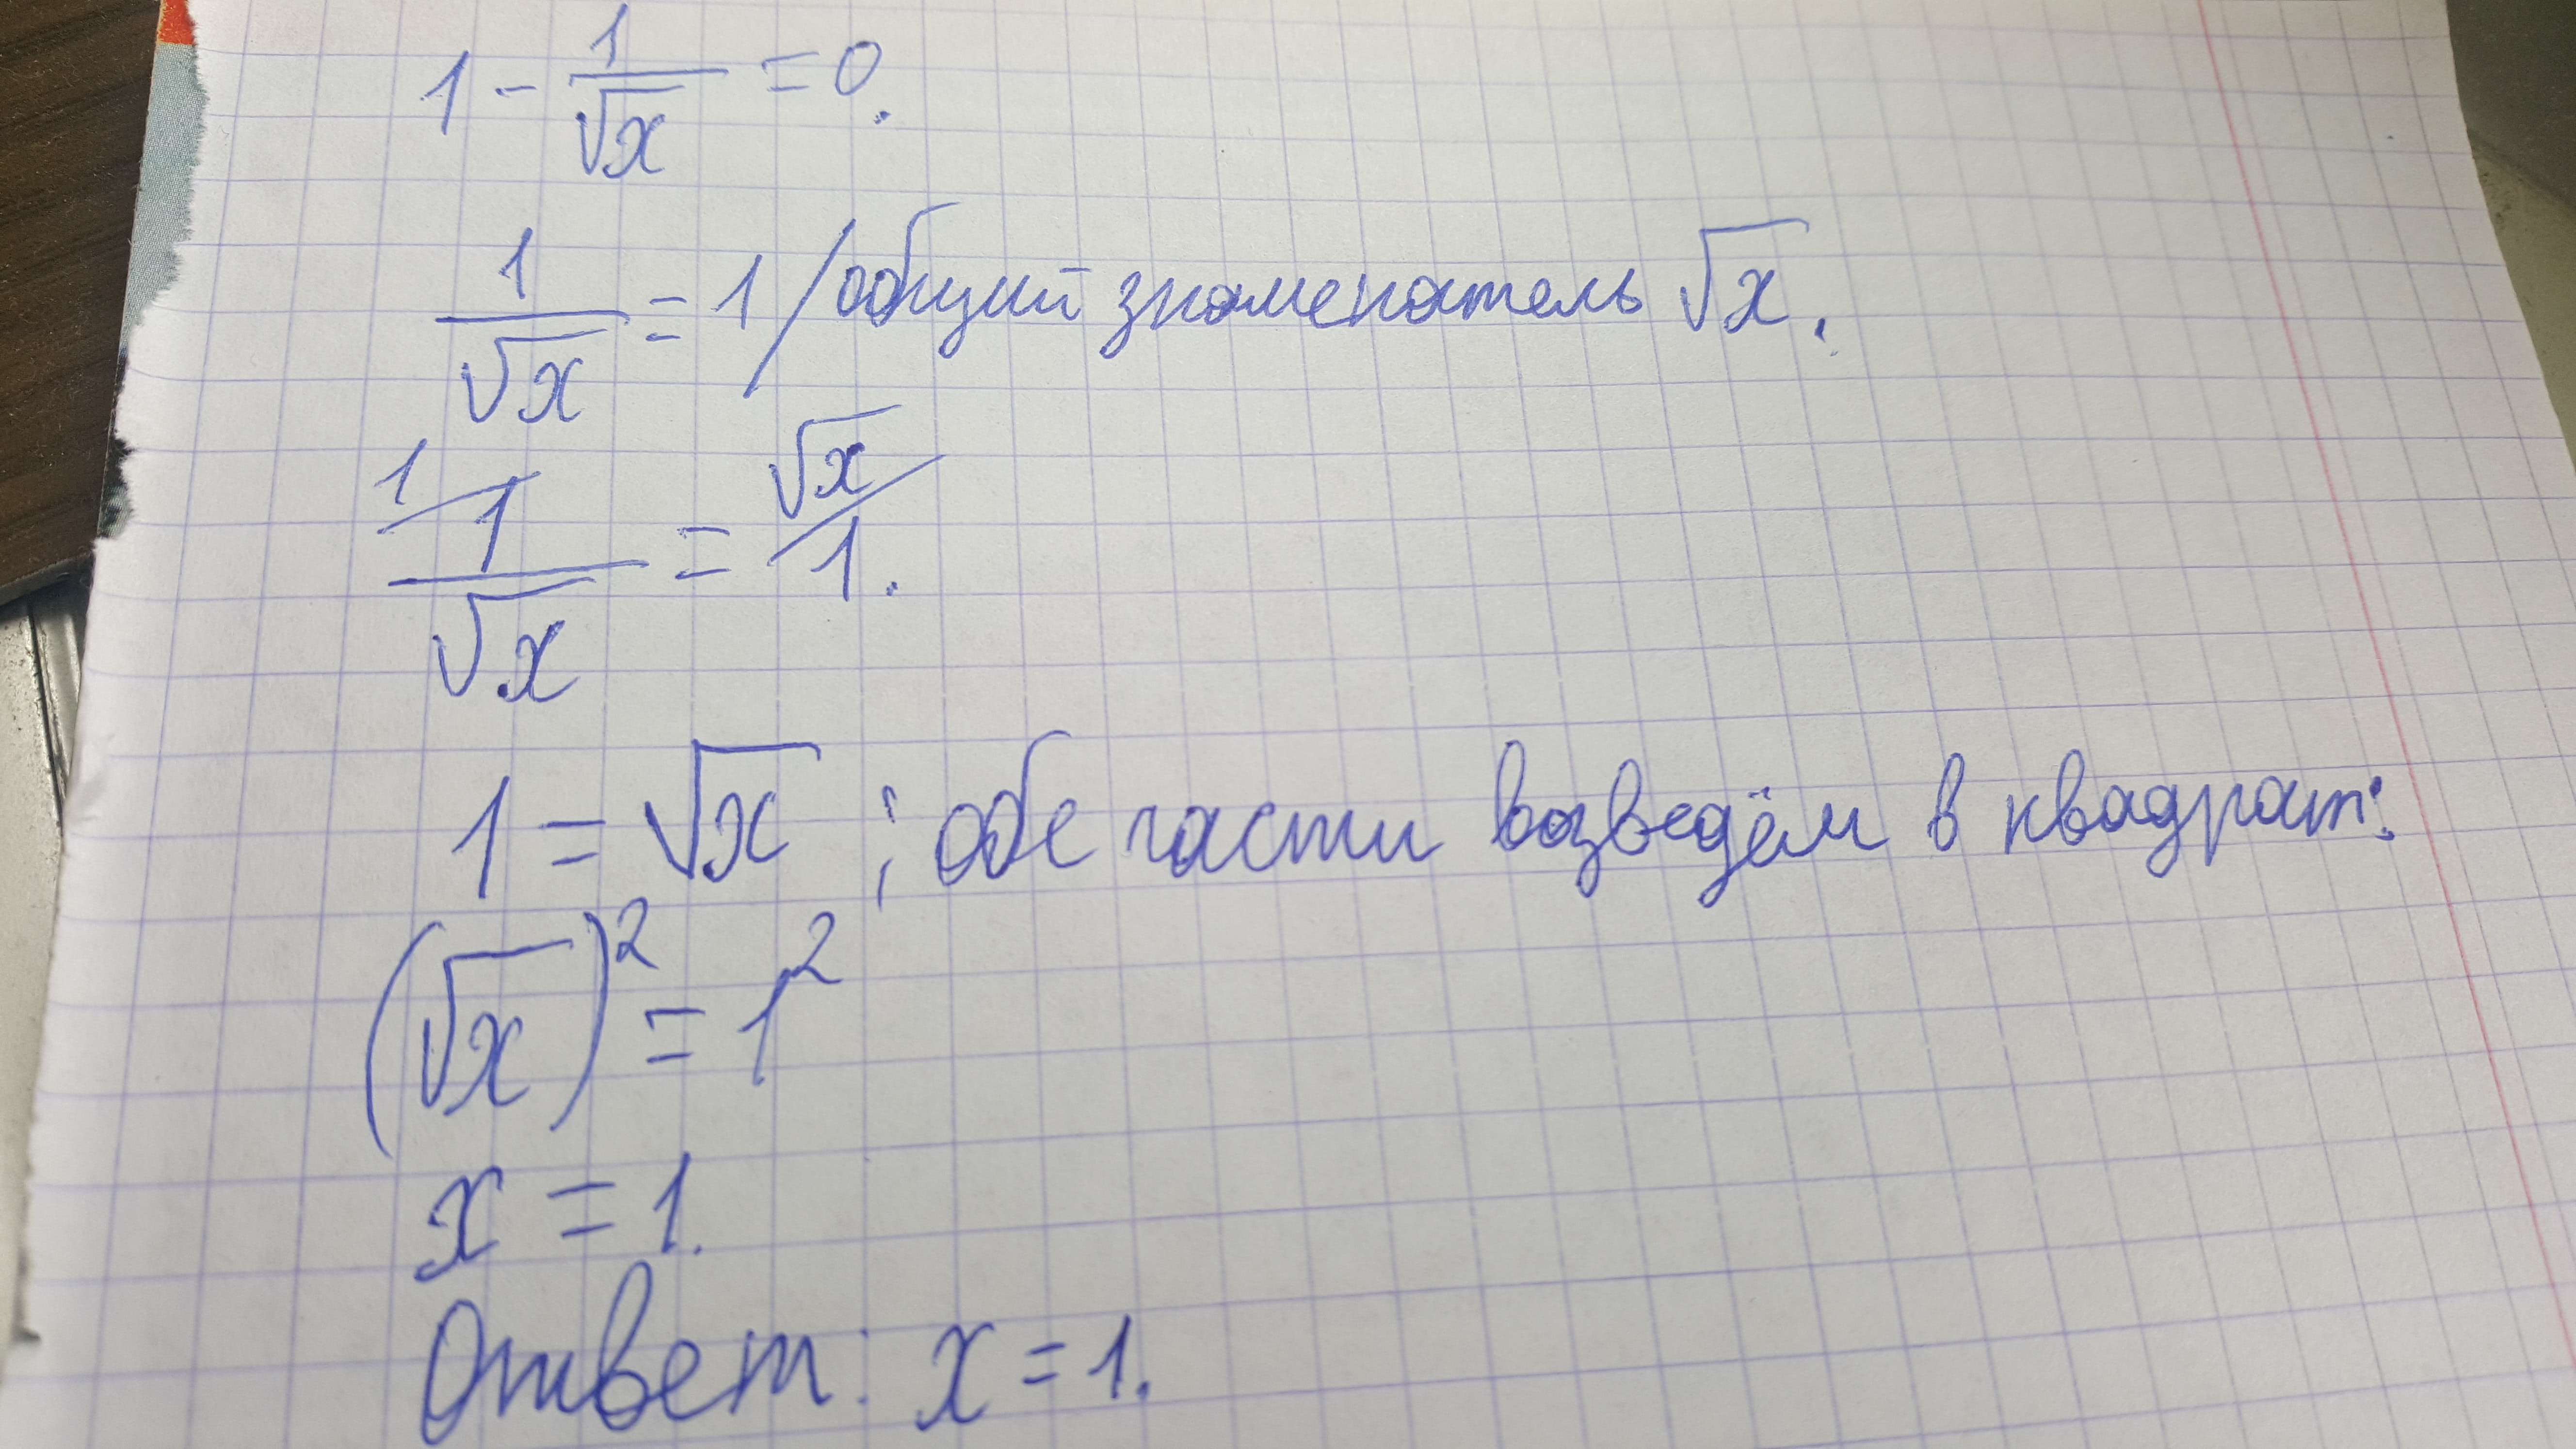 1 - 1/√x = 0.
1/√x = 1 / общий знаменатель √x.
1/ 1/√x = √x/ 1.
1 = √x ; обе части возведём в квадрат:
(√x)² = 1²
x = 1.
Ответ: x = 1.